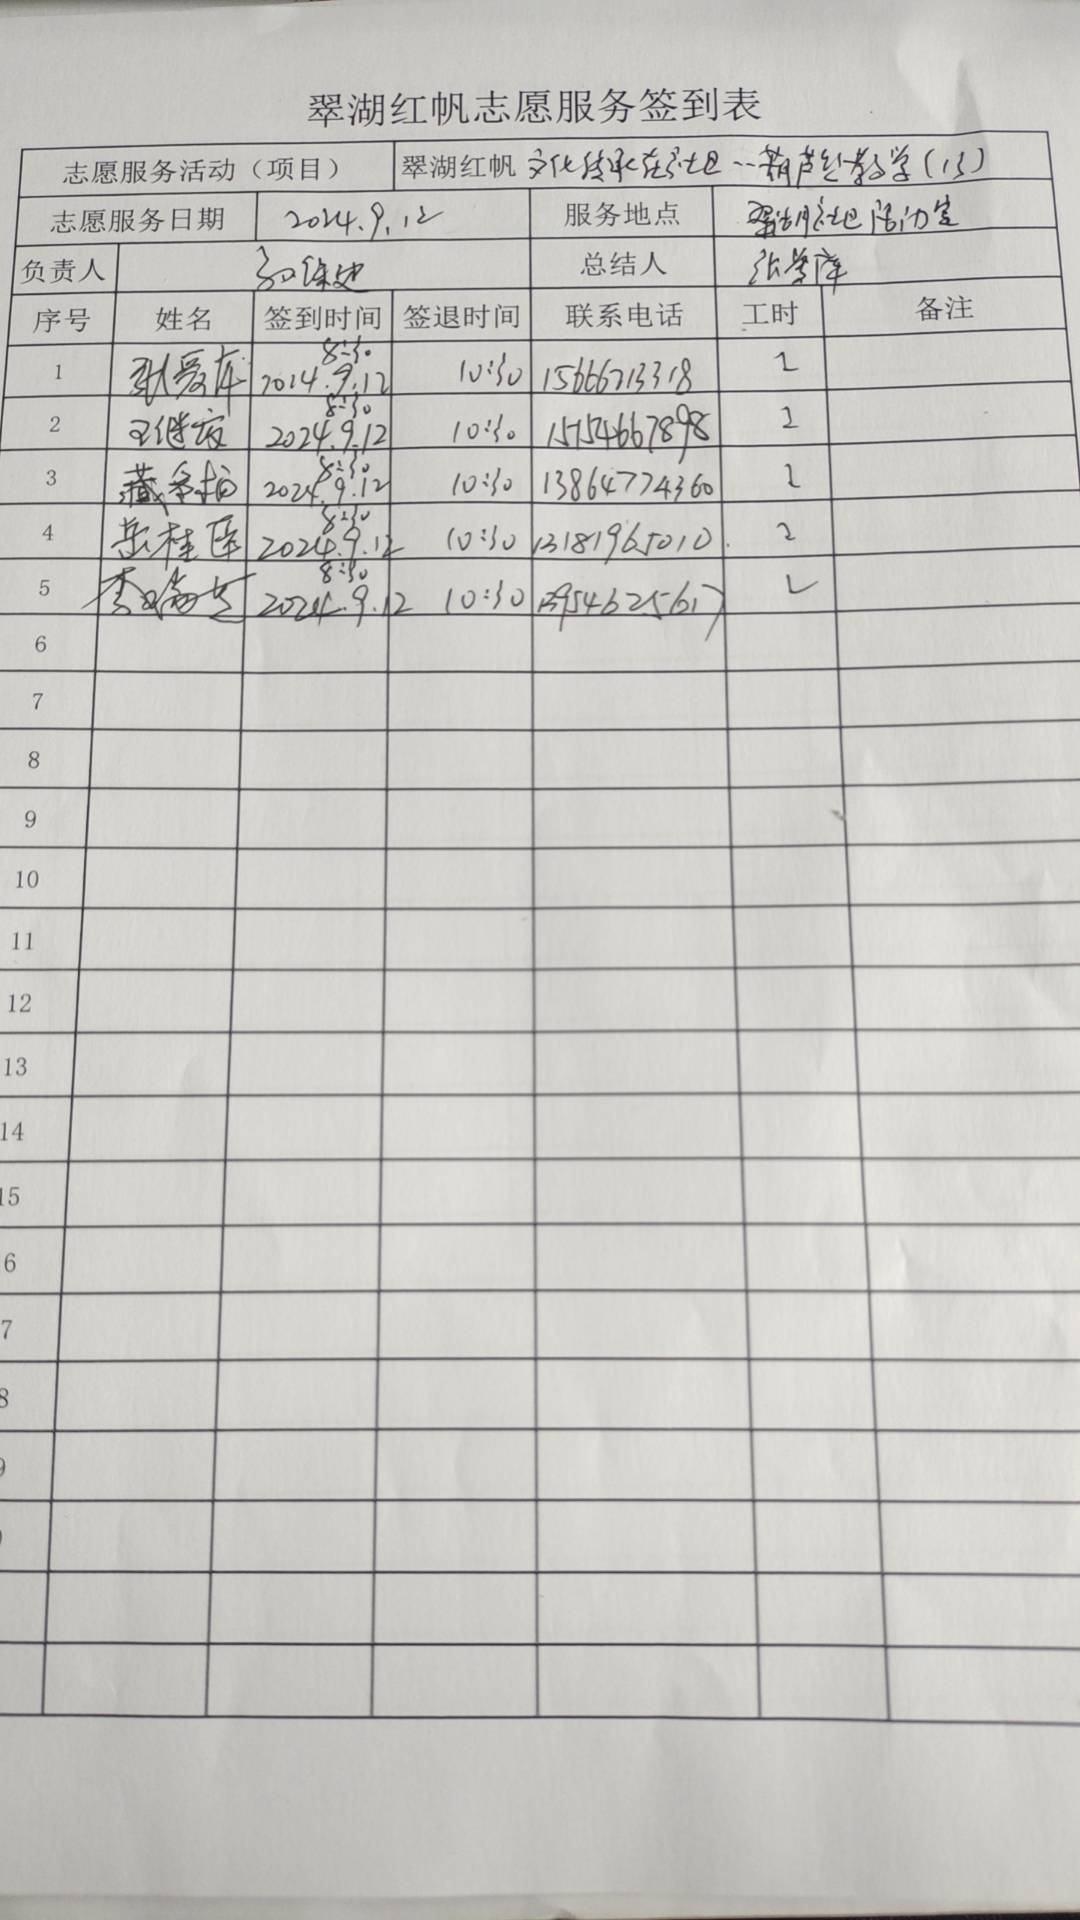 翠湖红帆志愿服务签到表
志愿服务活动（项目） 翠湖红帆 文化传承在社区--葫芦丝教学(13)
志愿服务日期 2024.9.12 服务地点 翠湖社区活动室
负责人 总结人
序号 姓名 签到时间 签退时间 联系电话 工时 备注
1 8:30 2014.9.12 10:30 15666213318 2
2 王继 8:30 2024.9.12 10:30 15154667898 2
3 8:30 2024.9.12 10:30 13864774360 2
4 岳桂 8:30 2024.9.12 10:30 13181965010 2
5 李 8:30 2024.9.12 10:30 13954625617 2
6
7
8
9
10
11
12
13
14
15
6
7
8
9